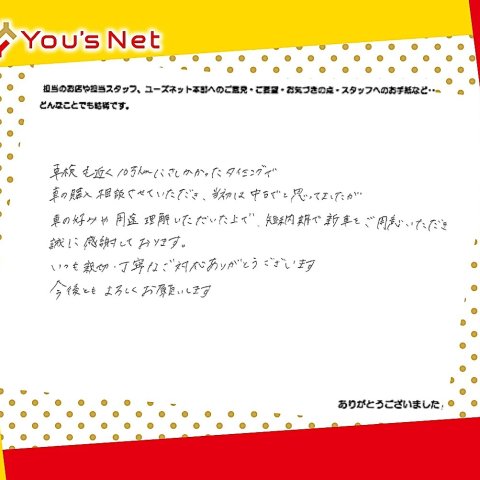 You's Net
担当のお店や担当スタッフ、ユーズネット本部へのご意見・ご要望・お気づきの点・スタッフへのお手紙など・・
どんなことでも結構です。
車検も近く10万kmにさしかかったタイミングで
車の購入相談させていただき、当初は中古でと思ってましたが
車の好みや用途理解しただいた上で、短納期で新車をご用意いただき
誠に感謝しております。
いつも親切・丁寧なご対応ありがとうございます
今後ともよろしくお願いします
ありがとうございました